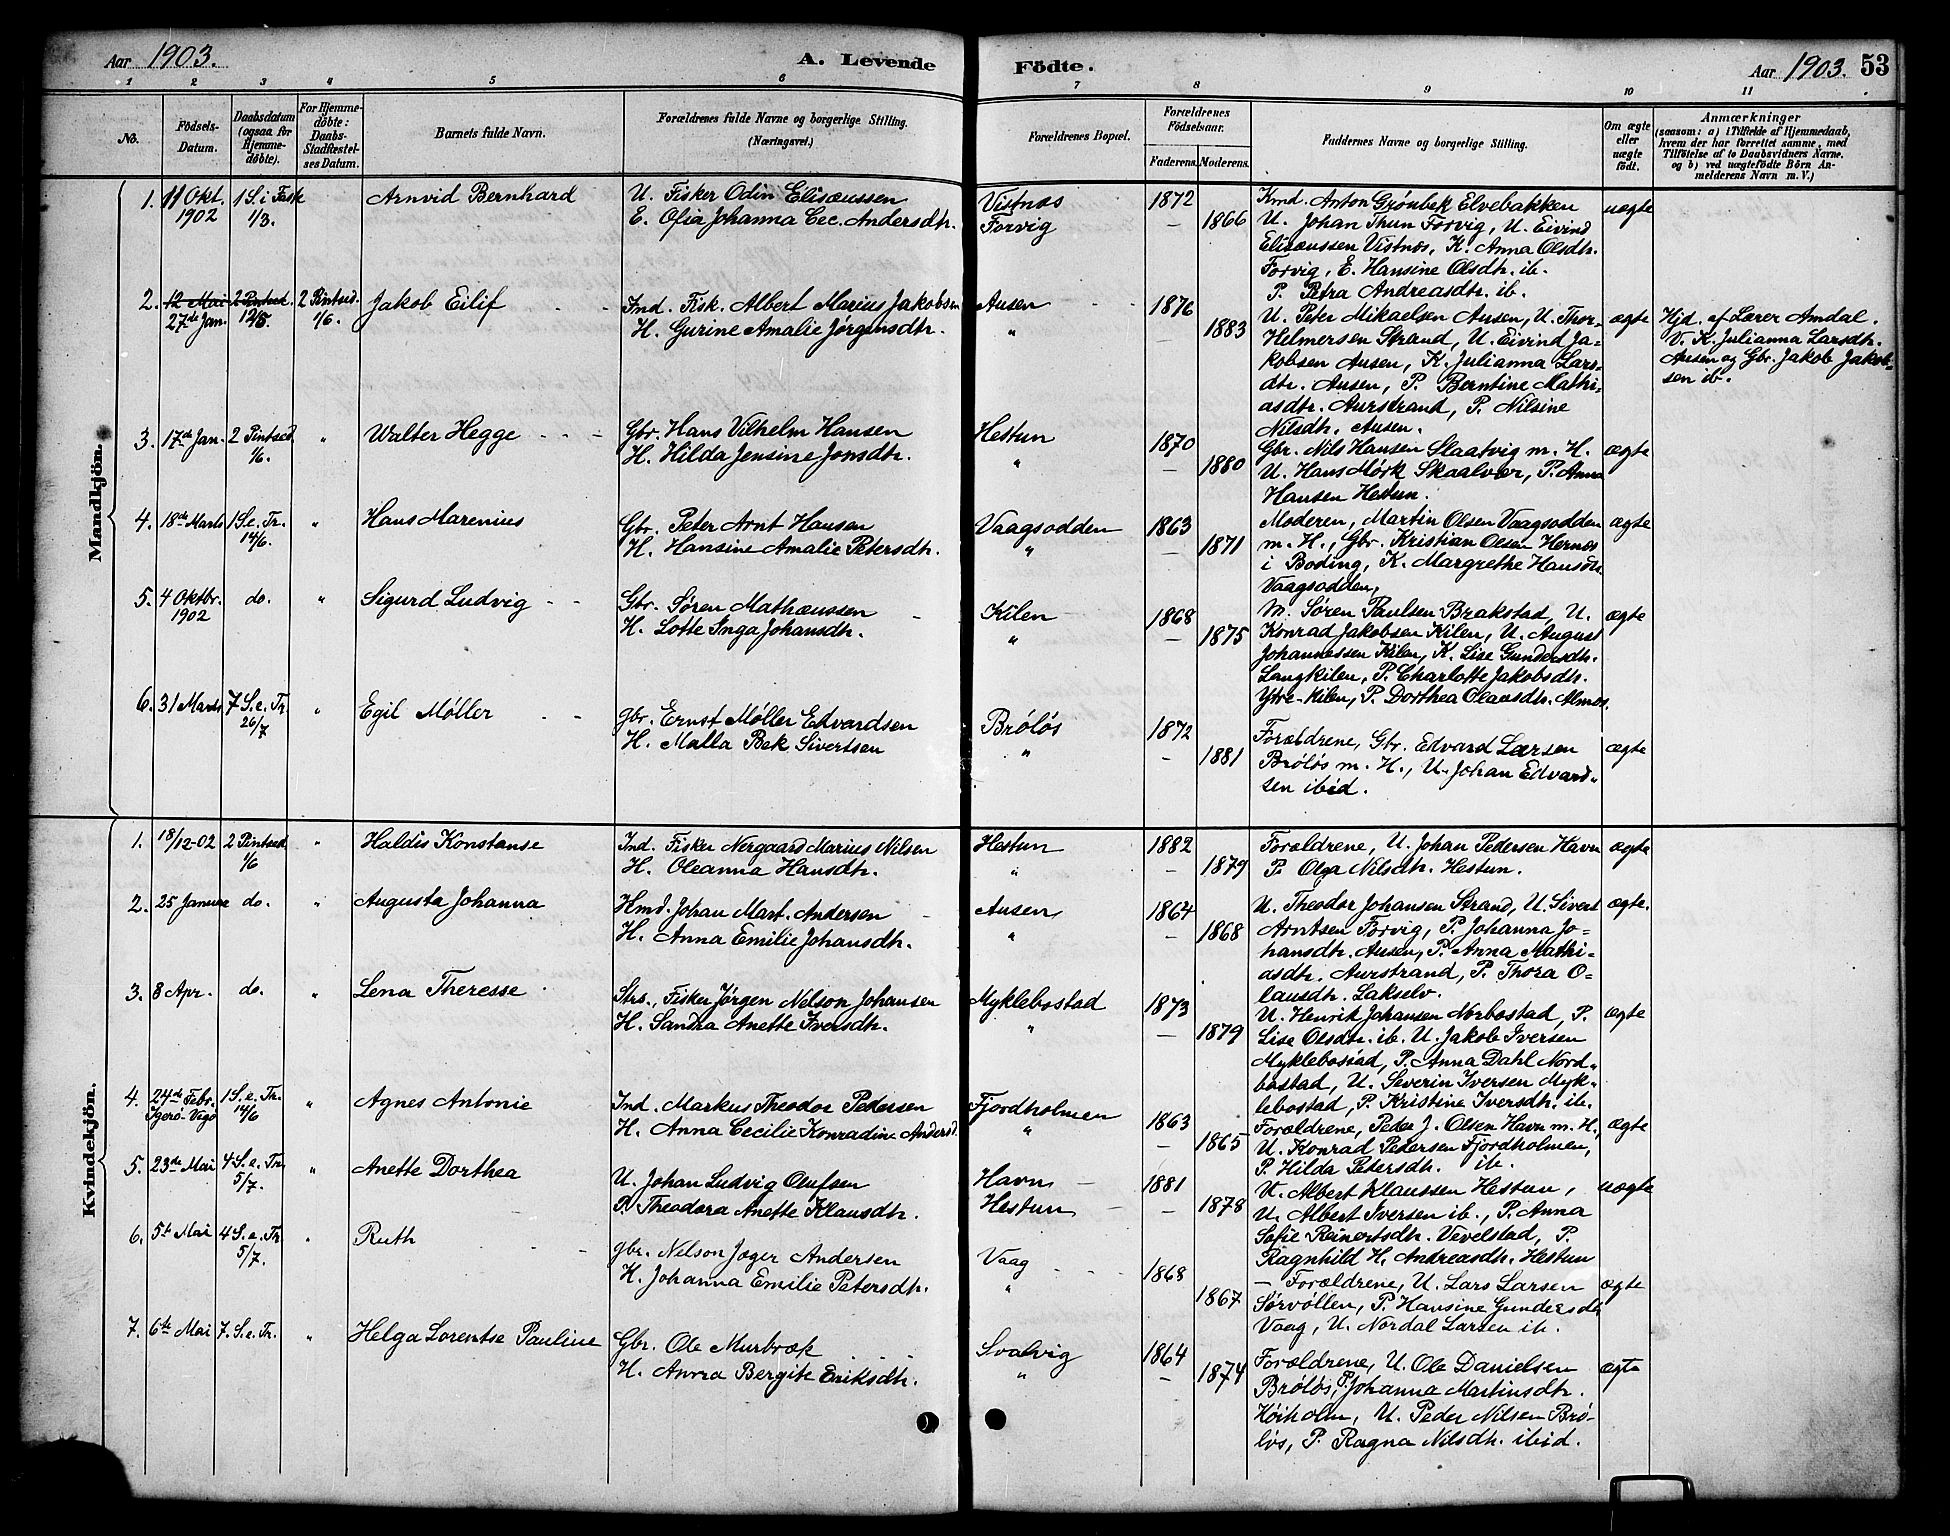 Aar 1903.
A. Levende Födte.
Aar 1903. 53
1 2 3 4 5 6 7 8 9 10 11
No.
Födsels-Datum.
Daabsdatum (ogsaa for Hjemme-döbte).
For Hjemme-döbte: Daabs-Stadfæstel-ses Datum.
Barnets fulde Navn.
Forældrenes fulde Navne og borgerlige Stilling. (Næringsvei.)
Forældrenes Bopæl.
Forældrenes Födselsaar.
Faderens. Moderens.
Faddernes Navne og borgerlige Stilling.
Om ægte eller uægte födt.
Anmærkninger
(saasom: a) i Tilfælde af Hjemmedaab, hvem der har forrettet samme, med Tilföielse af to Daabsvidners Navne. og b) ved uægtefödte Börn Anmelderens Navn m. V.)
Mandkjön.
1. 11 Okt. 1902
1 S. i Fask 1/3.
Arnvid Bernhard
U. Fisker Odin Elisæussen
E. Ofia Johanna Cec. Andersdtr.
Vistnæs
Forvig
1872
— 1866
Kmd. Anton Grønbek Elvebakken
U. Johan Thun Forvig, U. Eivind
Elisæussen Vistnæs, K. Anna Olsdtr.
Forvig, E. Hansine Olsdtr. ib.
P. Petra Andreasdtr. ib.
uægte
2. 12 Mai 27de Jan.
2 Pintsed. 12/5.
2 Pintsed. 1/6.
Jakob Eilif
Ind. Fisk. Albert Marius Jakobsen
H. Gurine Amalie Jørgensdtr.
Ausen
"
1876
— 1883
U. Peter Mikaelsen Ausen, U. Thor
Helmersen Strand, U. Eivind Ja-
kobsen Ausen, K. Julianna Lars-
dtr. Ausen, P. Berntine Mathi-
asdtr. Aurstrand, P. Nilsine
Nilsdtr. Ausen.
ægte
Hjd. af Lærer Amdal.
V. K. Julianna Larsdtr.
Ausen og Gbr. Jakob Jakob-
sen ib.
3. 17de Jan.
2 Pintsed 1/6.
"
Walter Hegge
Gbr. Hans Vilhelm Hansen
H. Hilda Jensine Jonsdtr.
Hestun
"
1870
— 1880
Gbr. Nils Hansen Slaatvig m. H.
U. Hans Mørk Skaalvær, P. Anna
Hansen Hestun.
ægte
4. 18de Marts
1 S. e. Tr. 14/6.
"
Hans Marenius
Gbr. Peter Arnt Hansen
H. Hansine Amalie Petersdtr.
Vaagsodden
"
1863
— 1871
Moderen, Martin Olsen Vaagsodden
m. H., Gbr. Kristian Olsen Hernes
i Boding, K. Margrethe Hansdtr.
Vaagsodden,
ægte
5. 4 Oktbr. 1902
do.
"
Sigurd Ludvig
Gbr. Søren Mathæussen
H. Lotte Inga Johansdtr.
Kilen
"
1868
— 1875
M. Søren Paulsen Brakstad, U.
Konrad Jakobsen Kilen, U. August
Johannessen Kilen, K. Lise Gundersdtr.
Langkilen, P. Charlotte Jakobsdtr.
Ytre-Kilen, P. Dorthea Olausdtr. Almos.
ægte
6. 31 Marts
7 S. e. Tr. 26/7
"
Egil Møller
Gbr. Ernst Møller Edvardsen
H. Malla Bek Sivertsen
Brøløs
"
1872
— 1881
Forældrene, Gbr. Edvard Larsen
Brøløs m. H., U. Johan Edvard-
sen ibid.
ægte
Kvindekjön.
1. 18/12-02
2 Pintsed 1/6
"
Haldis Konstanse
Ind. Fisker Nergaard Marius Nilsen
H. Oleanna Hansdtr.
Hestun
"
1882
— 1879
Forældrene, U. Johan Pedersen Havn
P. Olga Nilsdtr. Hestun.
ægte
2. 25 Januar
do.
"
Augusta Johanna
Hmd. Johan Mart. Andersen
H. Anna Emilie Johansdtr.
Ausen
"
1864
— 1868
U. Theodor Johansen Strand, U. Sivert
Arntsen Forvig, P. Johanna Jo-
hansdtr. Ausen, P. Anna Mathi-
asdtr. Aurstrand, P. Thora O-
lausdtr. Lakselv.
ægte.
3. 8 Apr.
do.
"
Lena Theresse
Strs., Fisker Jørgen Nelson Johansen
H. Sandra Anette Iversdtr.
Myklebostad
"
1873
— 1879
U. Henrik Johansen Norbostad, P.
Lise Olsdtr. ib. U. Jakob Iversen
Myklebostad, P. Anna Dahl Nord-
bostad, U. Severin Iversen Myk-
lebostad, P. Kristine Iversdtr. ib.
ægte
4. 24de Febr.
Igerø-Vegø
1 S. e. Tr. 14/6
"
Agnes Antonie
Ind. Markus Theodor Pedersen
H. Anna Cecilie Konradine Andersd.
Fjordholmen
"
1863
— 1865
Forældrene, Peder J. Olsen Havn m. H.,
U. Konrad Pedersen Fjordholmen,
P. Hilda Petersdtr. ib.
ægte
5. 23de Mai
4 S. e. Tr. 5/7.
"
Anette Dorthea
U. Johan Ludvig Olufsen
P. Theodora Anette Klausdtr.
Havn
Hestun
1881
— 1878
U. Albert Klaussen Hestun,
U. Albert Iversen ib., P. Anna
Sofie Reinertsdtr. Vevelstad, P.
Ragnhild H. Andreasdtr. Hestun
uægte
6. 5te Mai
4 S. e. Tr. 5/7.
"
Ruth
Gbr. Nelson Jæger Andersen
H. Johanna Emilie Petersdtr.
Vaag
"
1868
1867
— Forældrene, U. Lars Larsen
Sørvøllen, P. Hansine Gundersdtr
Vaag, U. Nordal Larsen ib.
ægte
7. 6te Mai
7. S. e. Tr.
"
Helga Lorentse Pauline
Gbr. Ole Murbræk
H. Anna Bergite Eriksdtr.
Svalvig
"
1864
— 1874
Forældrene, U. Ole Danielsen
Brøløs, P. Johanna Martinsdtr.
Høiholm, U. Peder Nilsen Brø-
løs, P. Ragna Nilsdtr. ibid.
ægte